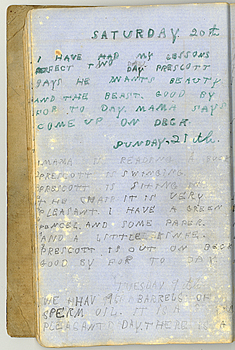 SATURDAY 20th
I HAVE HAD MY LESSONS
PERFECT TWO DAY. PRESCOTT
SAYS HE WANTS BEAUTY
AND THE BEAST. GOOD BY
FOR TO DAY. MAMA SAYS
COME UP ON DECK.
SUNDAY. 21th.
MAMA IS READING
PRESCOTT IS SWINGING.
PRESCOTT IS SITTING
THE MAT IT IS VERY
PLEASANT. I HAVE A GREEN
PENCEL AND SOME PAPER.
AND A LITTLE
PRESCOTT IS OUT ON DECK
GOOD BY FOR TO DAY
TUESDAY
WE HAV BARRELS OF
SPERM OIL. IT IS A
PLEASANT DAY. THERE IS A